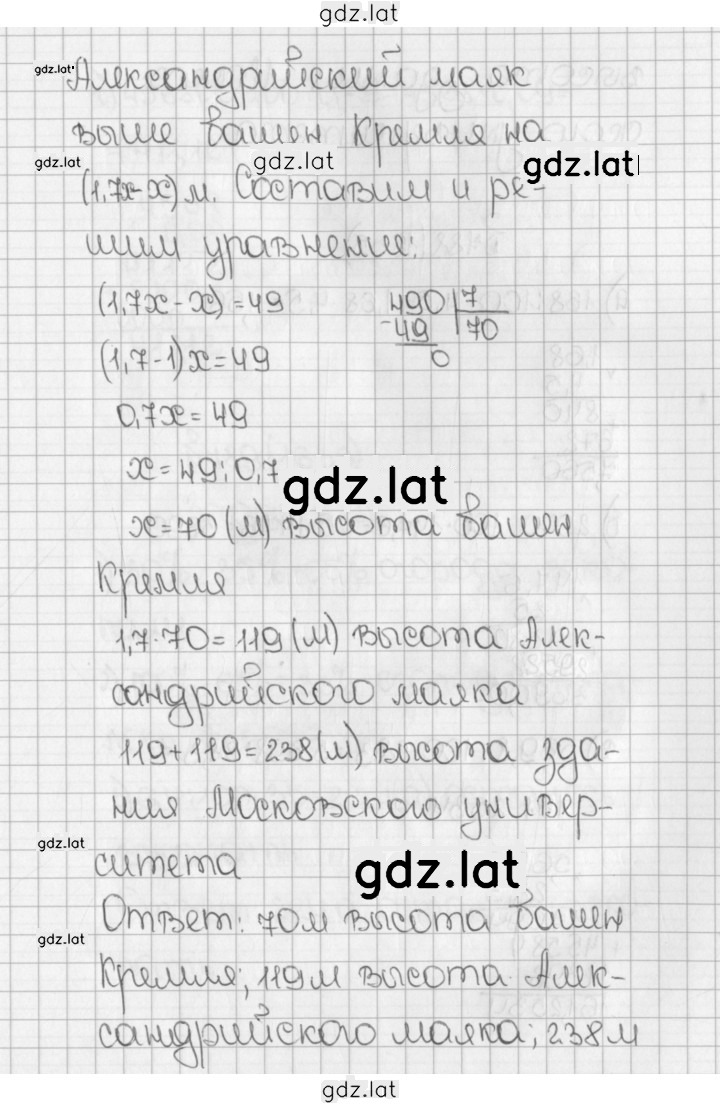 gdz.lat
gdz.lat Александрийский маяк
выше башен Кремля на
gdz.lat gdz.lat gdz.lat
(1,7х-х) м. Составим и ре-
шим уравнение:
(1,7х-х)=49 490 7
-49 70
(1,7-1)х=49 0
0,7х=49
х=49:0,7
gdz.lat
х=70(м) высота башен
Кремля
1,7·70=119(м) высота Алек-
сандрийского маяка
119+119=238(м) высота зда-
ния Московского универ-
gdz.lat
ситета gdz.lat
Ответ: 70м высота башен
gdz.lat
Кремля; 119м высота Алек-
сандрийского маяка; 238м
gdz.lat